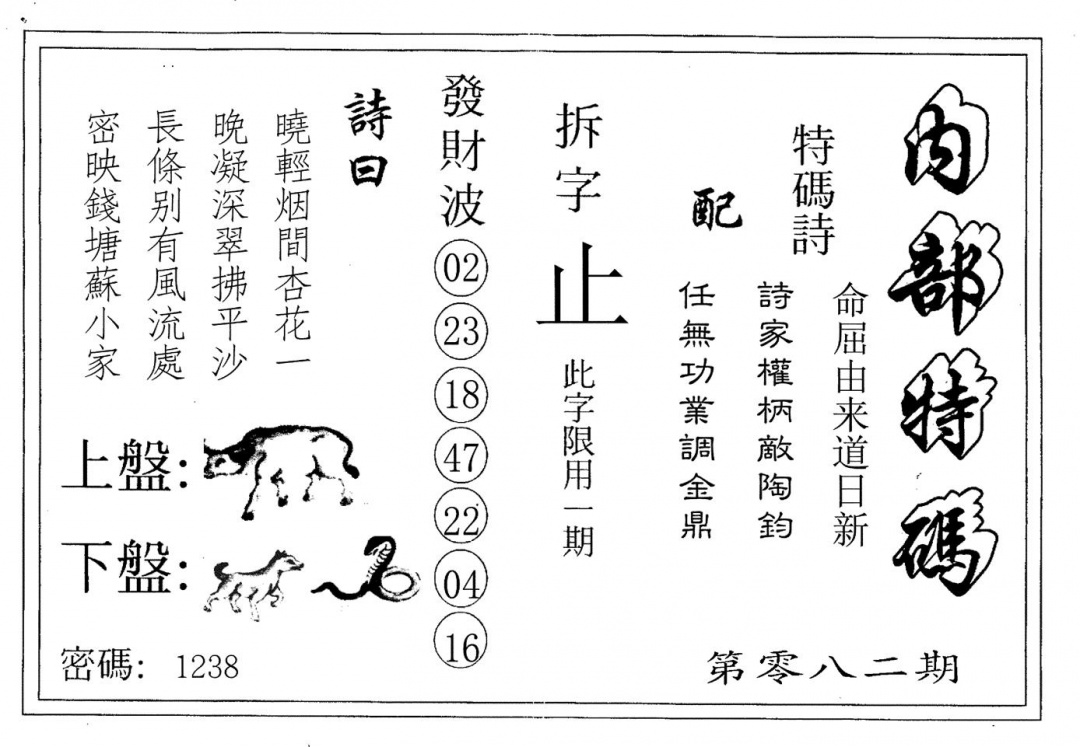 内部特碼
特碼詩
命屈由来道日新
詩家權柄敵陶鈞
配
任無功業調金鼎
第零八二期
拆字
止
此字限用一期
發財波
02
23
18
47
22
04
16
詩曰
曉輕烟間杏花一
晚凝深翠拂平沙
長條别有風流處
密映錢塘蘇小家
上盤:
下盤:
密碼: 1238